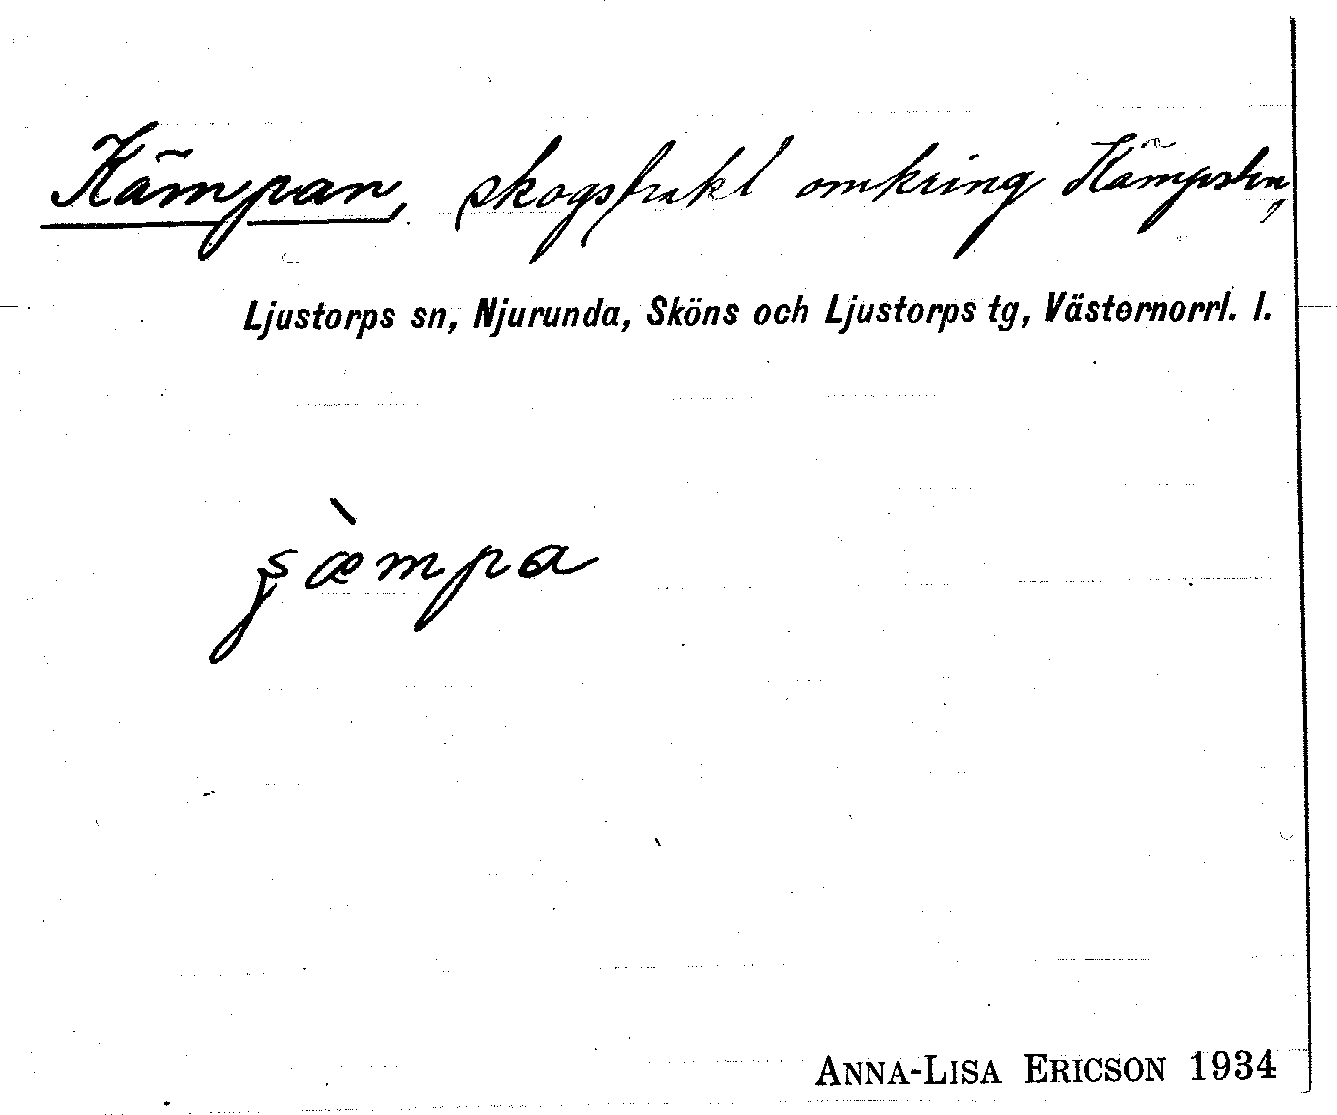 Kämpan, skogstrakt omkring Kämpsten,
Ljustorps sn, Njurunda, Sköns och Ljustorps tg, Västernorrl. l.
ʂæ̀mpa
ANNA-LISA ERICSON 1934